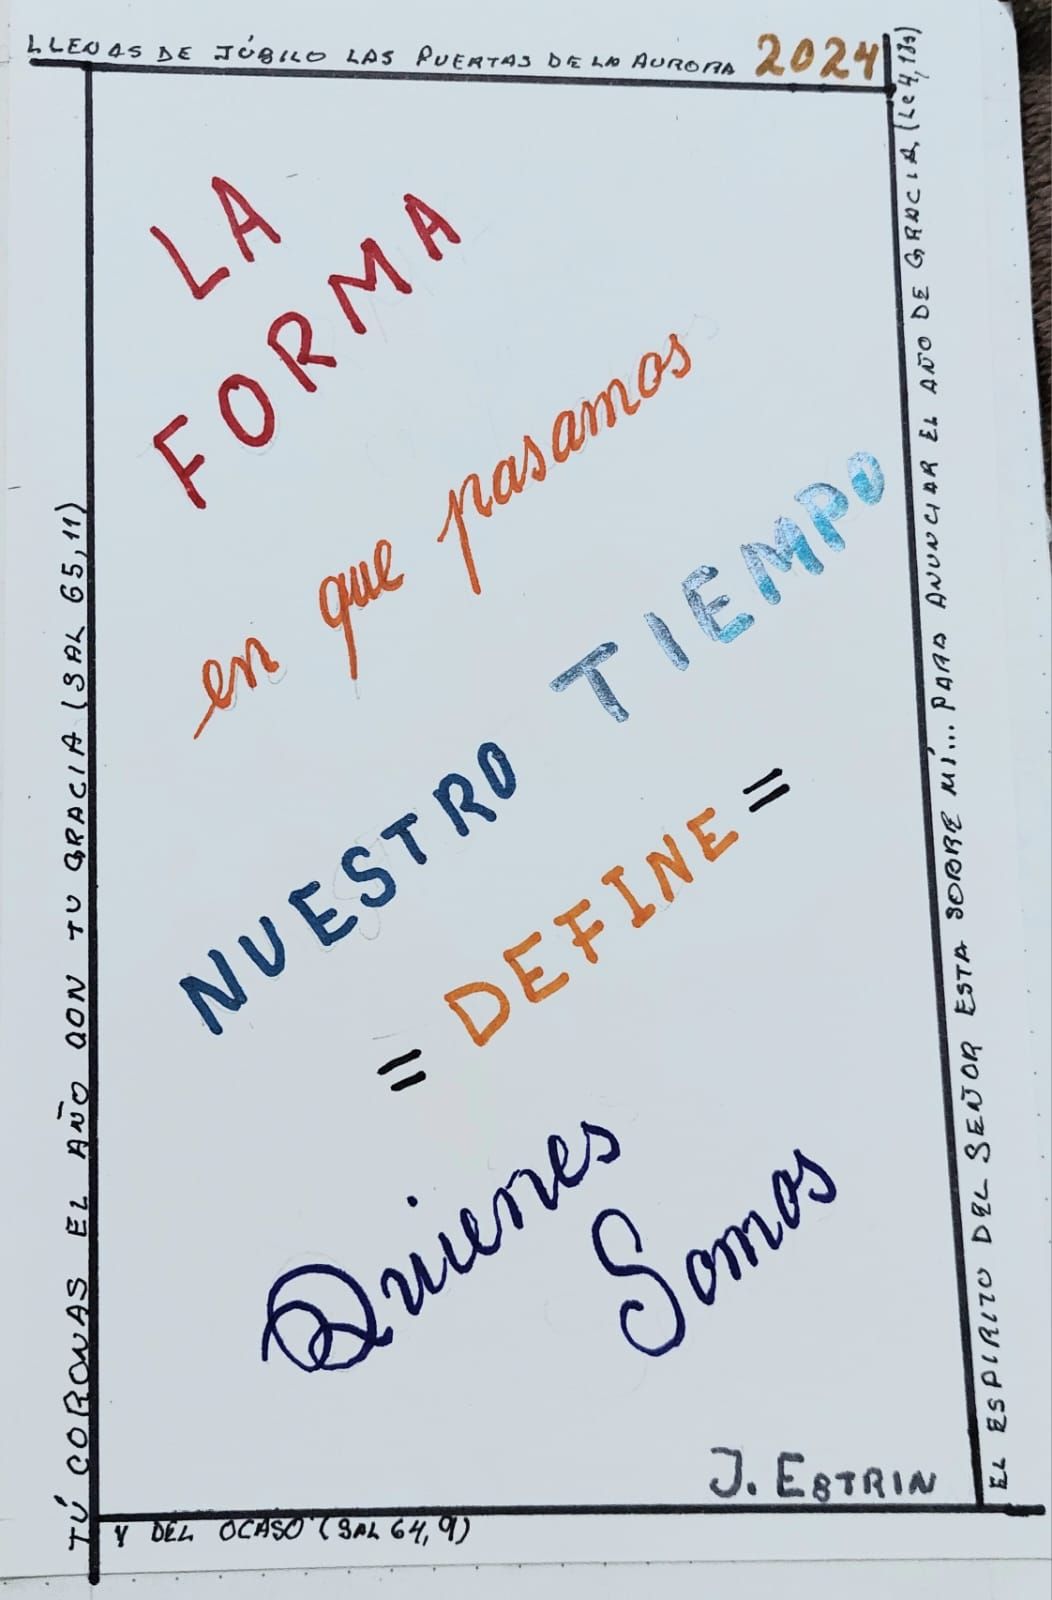 LLENAS DE JÚBILO LAS PUERTAS DE LA AURORA 2024
LA
FORMA
en que pasamos
NUESTRO TIEMPO
= DEFINE =
Quienes
Somos
J. ESTRIN
Y DEL OCASO (SAL 64, 9)
TÚ CORONAS EL AÑO CON TU GRACIA (SAL 65, 11)
EL ESPIRITO DEL SEÑOR ESTA SOBRE MÍ... PARA ANUNCIAR EL AÑO DE GRACIA (Lc 4, 18s)